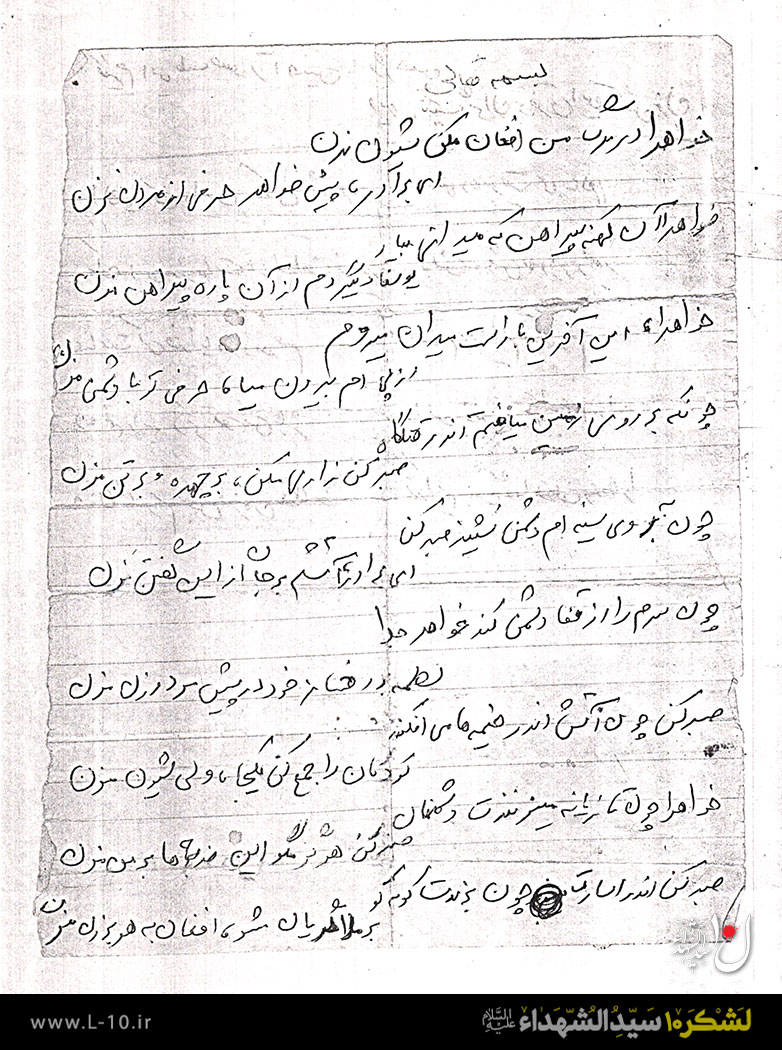 بسمه تعالی
خواهرا در مرگ من افغان مکن شیون مزن
ای برادر، پیش خواهر حرفی از مردن مزن
خواهرا آن کهنه پیراهن که میدانی بیار
یوسفا دیگر دم از آن پاره پیراهن مزن
خواهرا، این آخرین بار است میدان میروم
از پی ام بیرون میا، حرفی تو با دشمن مزن
چونکه بر روی زمین میافتم اندر قتلگاه
صبر کن زاری مکن، بر چهره و بر تن مزن
چون بروی سینه ام دشمن نشیند صبر کن
ای برادر آتشم بر جان از این گفتن مزن
چون سرم را از قفا دشمن کند خواهر جدا
لطمه بر رخسار خود در پیش مرد و زن مزن
صبر کن چون آتش اندر خیمه ها می افکنند
کودکان را جمع کن یکجا، ولی شیون مزن
خواهرا چون تازیانه میزنندت دشمنان
صبر کن هرگز مگو این ضربه ها بر من مزن
صبر کن اندر اسارت چون برندت کو به کو
افغان به هر برزن مزن
لشکر۱۰ سَیِّدُ الشُّهَداء علیه السلام
www.L-10.ir